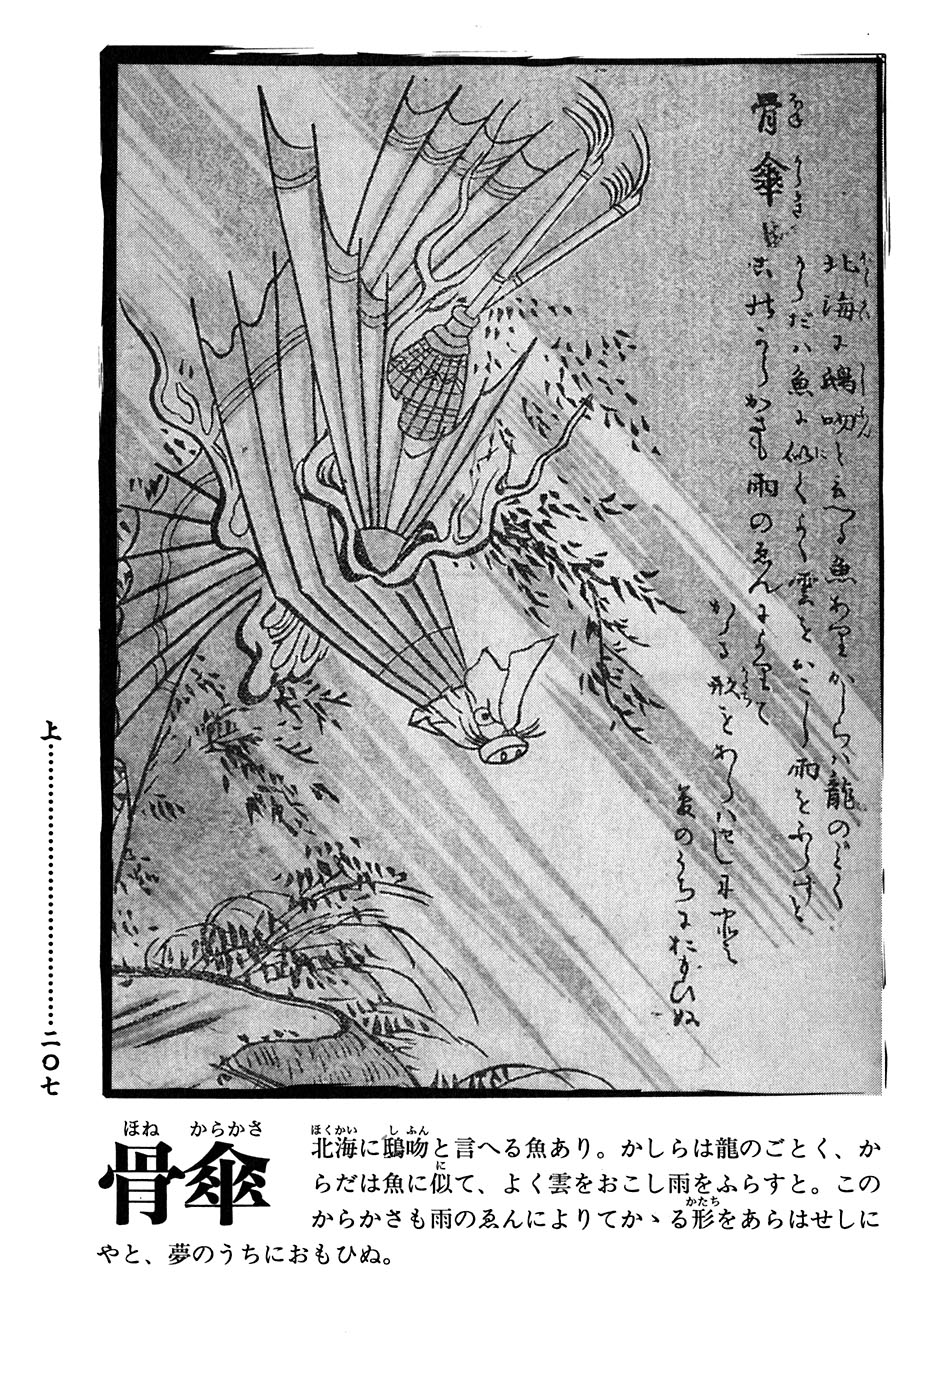 骨傘
ほね からかさ
北海に鴟吻と云へる魚あり かしらは龍のごとく
からだは魚に似てよく雲をおこし雨をふらすと
このからかさも雨のゑんによりて
かゝる形をあらはせしにやと
夢のうちにおもひぬ
上
二〇七
ほね からかさ
骨傘
ほくかい し ふん
北海に鴟吻と言へる魚あり。かしらは龍のごとく、か
に
らだは魚に似て、よく雲をおこし雨をふらすと。この
かたち
からかさも雨のゑんによりてかゝる形をあらはせしに
やと、夢のうちにおもひぬ。